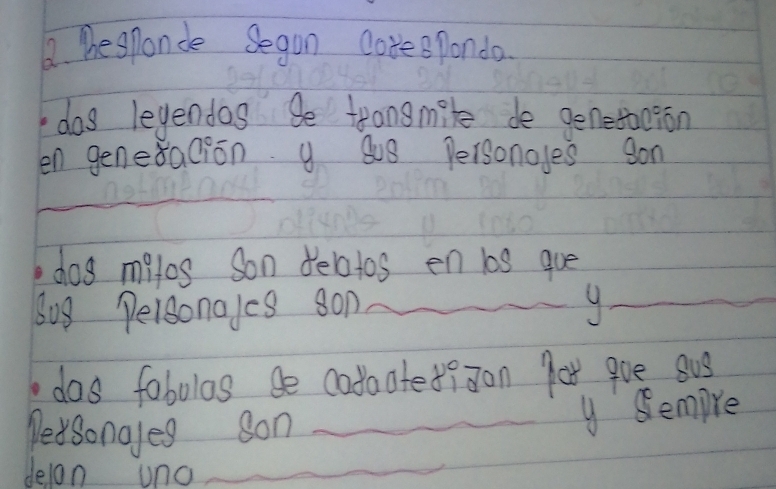 2. Responde Segun Corresponda.
• las leyendas Se transmite de generación
en generación y sus Personajes Son
• las mitos Son relatos en los que
Sus Personajes son y
• las fabulas Se caracterizan Por que sus
Personajes Son y Siempre
dejan una